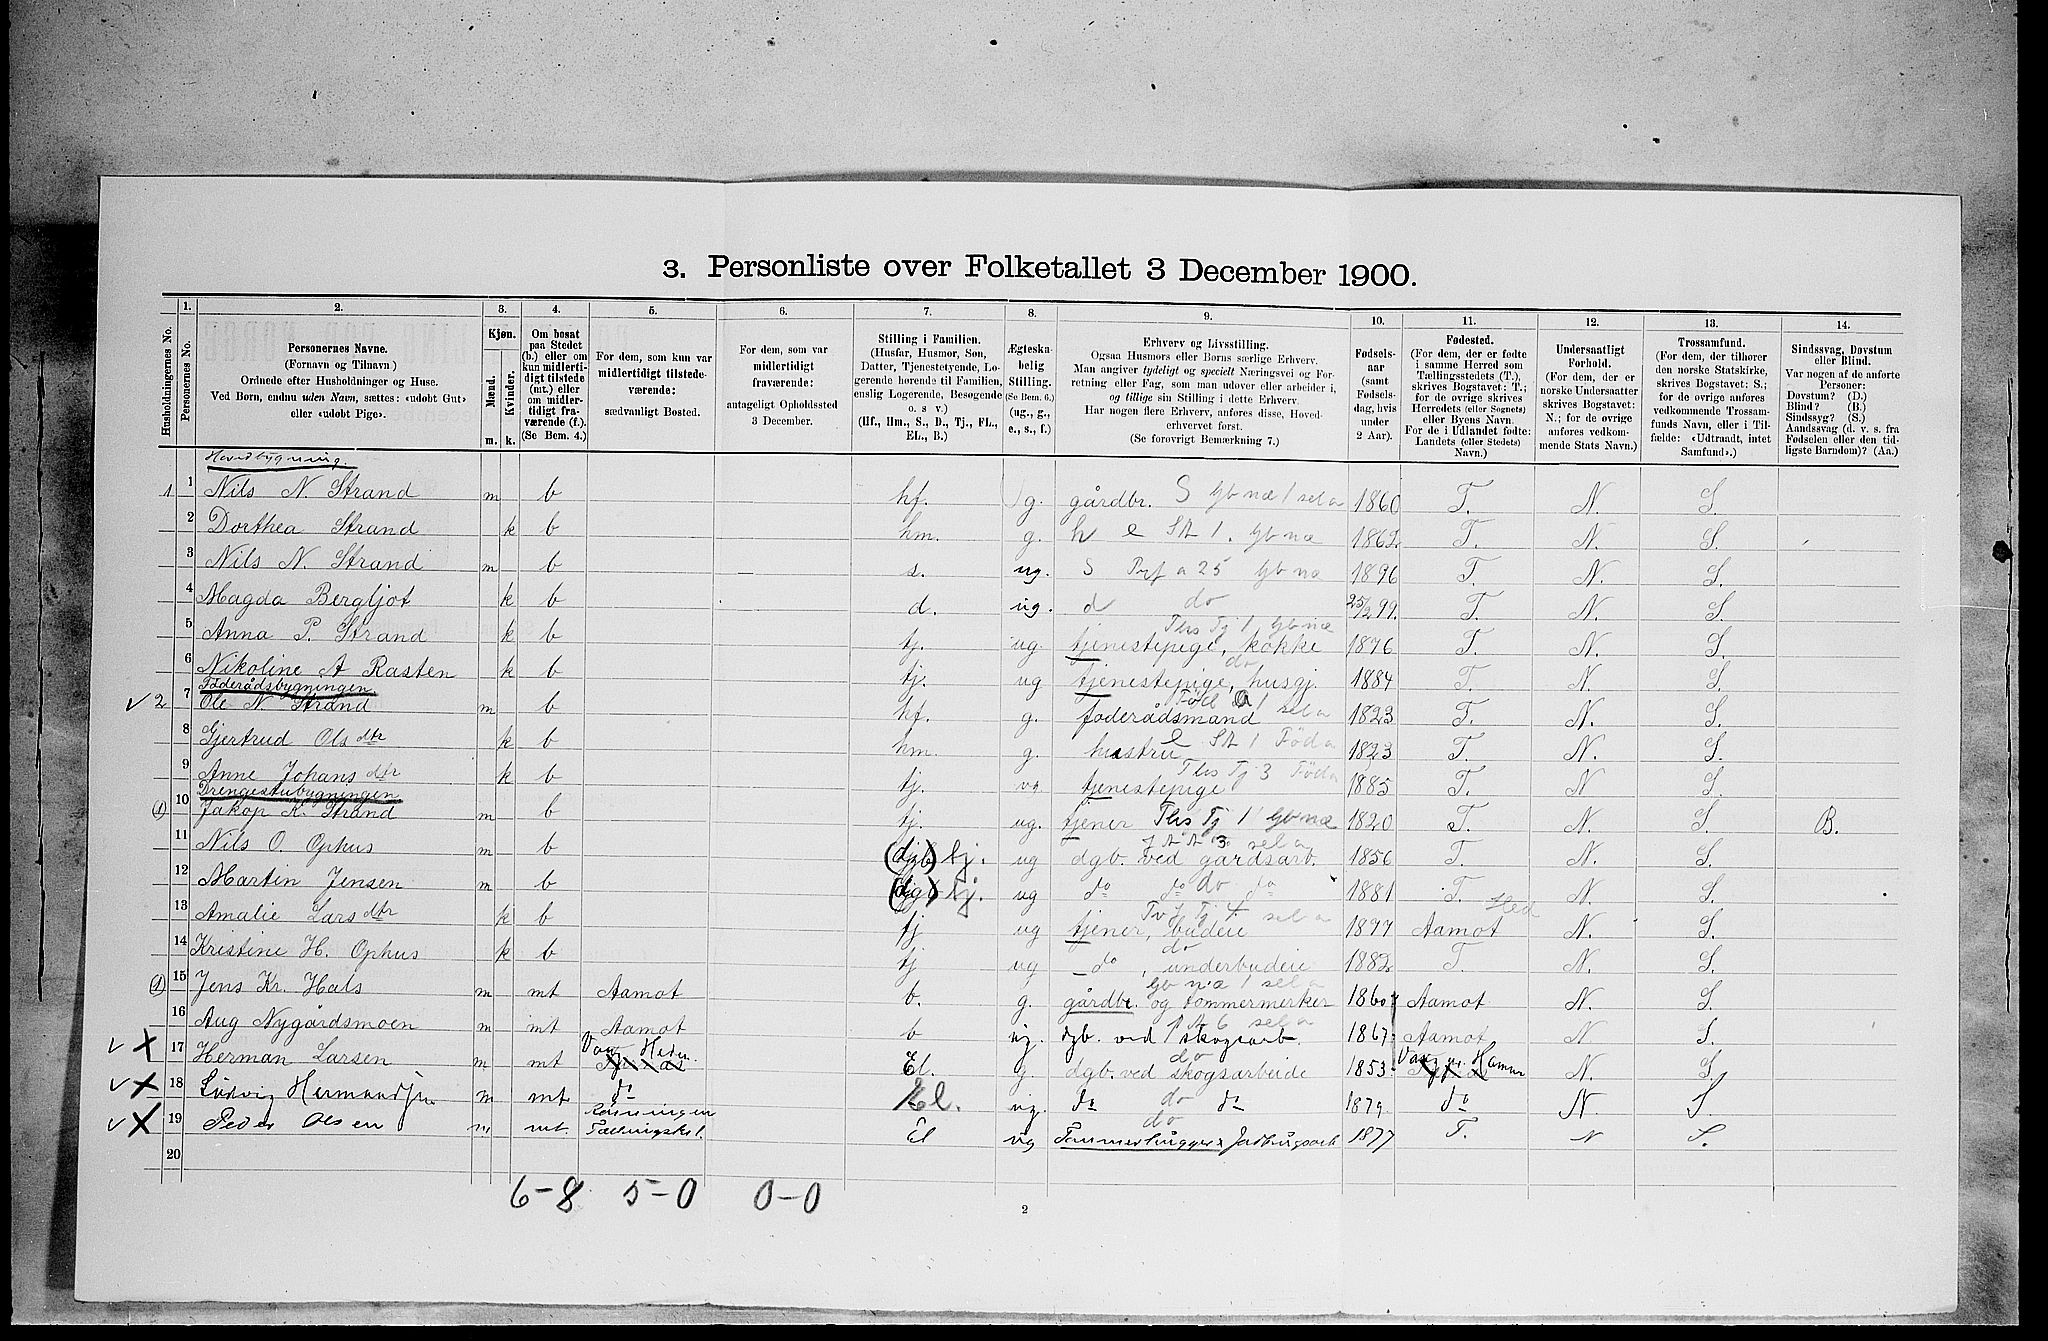 3. Personliste over Folketallet 3 December 1900.
Husholdningernes No.
1. Personernes No.
2. Personernes Navne.
(Fornavn og Tilnavn)
Ordnede efter Husholdninger og Huse.
Ved Børn, endnu uden Navn, sættes: «udøbt Gut»
eller «udøbt Pige».
3. Kjøn.
Mænd. m.
Kvinder. k.
4. Om bosat
paa Stedet
(b.) eller om
kun midlerti-
digt tilstede
(mt.) eller
om midler-
tidigt fra-
værende (f.).
(Se Bem. 4.)
5. For dem, som kun var
midlertidigt tilstede-
værende:
sædvanligt Bosted.
6. For dem, som var
midlertidigt
fraværende:
antageligt Opholdssted
3 December.
7. Stilling i Familien.
(Husfar, Husmor, Søn,
Datter, Tjenestetyende, Lo-
gerende hørende til Familien,
enslig Logerende, Besøgende
o. s v.)
(Hf., Hm., S., D., Tj., FL.,
EL., B.)
8. Ægteska-
belig
Stilling.
(Se Bem. 6.)
(ug., g.,
e., s., f.)
9. Erhverv og Livsstilling.
Ogsaa Husmors eller Børns særlige Erhverv.
Man angiver tydeligt og specielt Næringsvei og For-
retning eller Fag, som man udøver eller arbeider i,
og tillige sin Stilling i dette Erhverv.
Har nogen flere Erhverv, anføres disse, Hoved-
erhvervet først.
(Se forøvrigt Bemærkning 7.)
10. Fødsels-
aar
(samt
Fødsels-
dag, hvis
under
2 Aar).
11. Fødested.
(For dem, der er fødte
i samme Herred som
Tællingsstedets (T.),
skrives Bogstavet: T.;
for de øvrige skrives
Herredets (eller Sognets)
eller Byens Navn.
For de i Udlandet fødte:
Landets (eller Stedets)
Navn.)
12. Undersaatligt
Forhold.
(For dem, der er
norske Undersaatter
skrives Bogstavet:
N.; for de øvrige
anføres vedkom-
mende Stats Navn.)
13. Trossamfund.
(For dem, der tilhører
den norske Statskirke,
skrives Bogstavet: S.;
for de øvrige anføres
vedkommende Trossam-
funds Navn, eller i Til-
fælde: «Udtraadt, intet
Samfund».)
14. Sindssvag, Døvstum
eller Blind.
Var nogen af de anførte
Personer:
Døvstum? (D.)
Blind? (B.)
Sindssyg? (S.)
Aandssvag (d. v. s. fra
Fødselen eller den tid-
ligste Barndom)? (Aa.)
Hovedbygning.
1 1 Nils N Strand m b hf. g. gårdbr. S Gb næ 1 sel a 1860 T. N. S.
2 Dorthea Strand k b hm. g. h e SA 1. Gb næ 1862 T. N. S.
3 Nils N. Strand m b s. ug. S Prf a 25 Gb næ 1896 T. N. S.
4 Magda Bergljot k b d. ug. d do 25/2 99. T. N. S.
Ths Tj 1 Gb næ
5 Anna P. Strand k b tj. ug. tjenestepige, kokke 1876 T. N. S.
do
6 Nikoline A Rasten k b tj. ug tjenestepige, husgj. 1884 T. N. S.
Föderådsbygningen
Föd a 1 sel a
2 7 Ole N Strand m b hf. g. foderådsmand 1823 T. N. S.
8 Gjertrud Olsdtr k b hm. g. hustru e SA 1 Föd a 1823 T. N. S.
Ths Tj 3 Föd a
9 Anne Johansdtr k b tj. ug tjenestepige 1885 T. N S.
Drengestubygningen
(1) 10 Jakop K. Strand m b tj. ug. tjener Ths Tj 1 Gb næ 1820 T. N. S. B.
sel a
11 Nils O. Ophus m b tj. ug dgb. ved gårdsarb. 1856 T. N. S.
12 Martin Jensen m b (dgb) tj. ug do do do do 1881 T. N. S.
Tj 4 sel a Hed
13 Amalie Larsdtr k b tj ug tjener, budeie 1877 Aamot N. S.
do
14 Kristine H. Ophus k b tj ug do, underbudeie 1882 T. N. S.
Gb næ 1 sel a
(1) 15 Jens Kr. Hals m mt Aamot b. g. gårdbr. og tømmermerker 1860 Aamot N. S.
sel a
16 Aug Nygårdsmoen m mt Aamot b ug. dgb. ved skogsarb. 1867 Aamot N S.
do
17 Herman Larsen m mt Vang Heden. El. g. dgb. ved skogsarbeide 1853 Vang pr. Hamar N. S.
18 Ludvig Hermandsen m mt do El. ug. do do do 1879 do N. S.
do
19 Peder Olsen m mt. El ug Tømmerhugger & Jordbrugsarb 1877 T. N S.
20
6-8 5-0 0-0
2